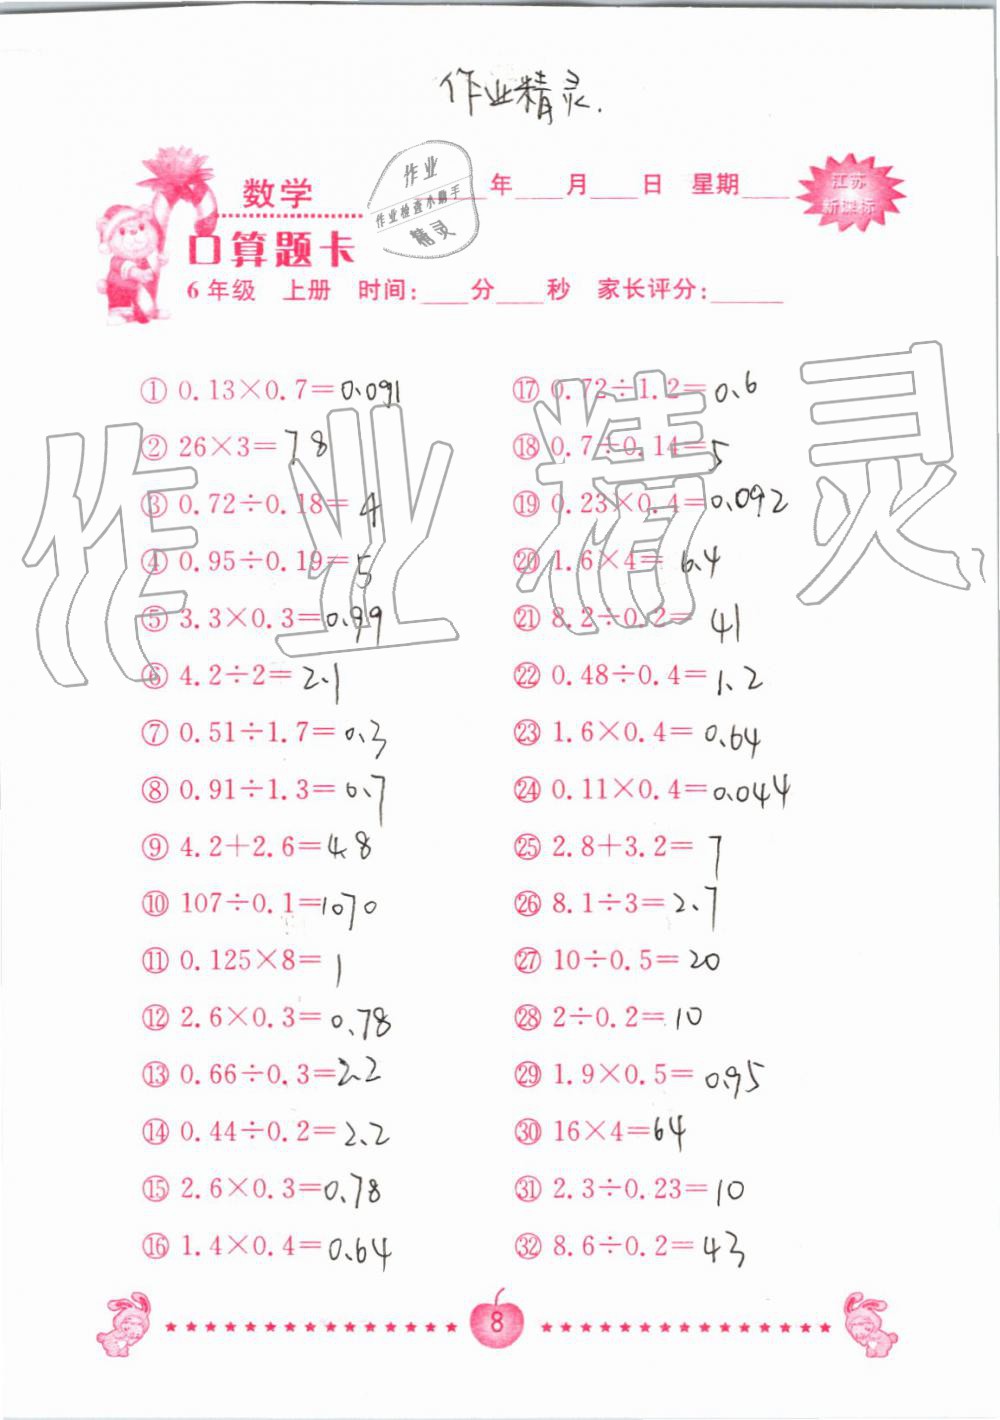 作业精灵.
数学
年 月 日 星期
江苏
新课标
作业
作业检查小助手
精灵
口算题卡
6年级 上册 时间: 分 秒 家长评分:
① 0.13×0.7=0.091
② 26×3=78
③ 0.72÷0.18=4
④ 0.95÷0.19=5
⑤ 3.3×0.3=0.99
⑥ 4.2÷2=2.1
⑦ 0.51÷1.7=0.3
⑧ 0.91÷1.3=0.7
⑨ 4.2+2.6=4.8
⑩ 107÷0.1=1070
⑪ 0.125×8=1
⑫ 2.6×0.3=0.78
⑬ 0.66÷0.3=2.2
⑭ 0.44÷0.2=2.2
⑮ 2.6×0.3=0.78
⑯ 1.4×0.4=0.64
⑰ 0.72÷1.2=0.6
⑱ 0.7÷0.14=5
⑲ 0.23×0.4=0.092
⑳ 1.6×4=6.4
㉑ 8.2÷0.2=41
㉒ 0.48÷0.4=1.2
㉓ 1.6×0.4=0.64
㉔ 0.11×0.4=0.044
㉕ 2.8+3.2=7
㉖ 8.1÷3=2.7
㉗ 10÷0.5=20
㉘ 2÷0.2=10
㉙ 1.9×0.5=0.95
㉚ 16×4=64
㉛ 2.3÷0.23=10
㉜ 8.6÷0.2=43
作业精灵
8